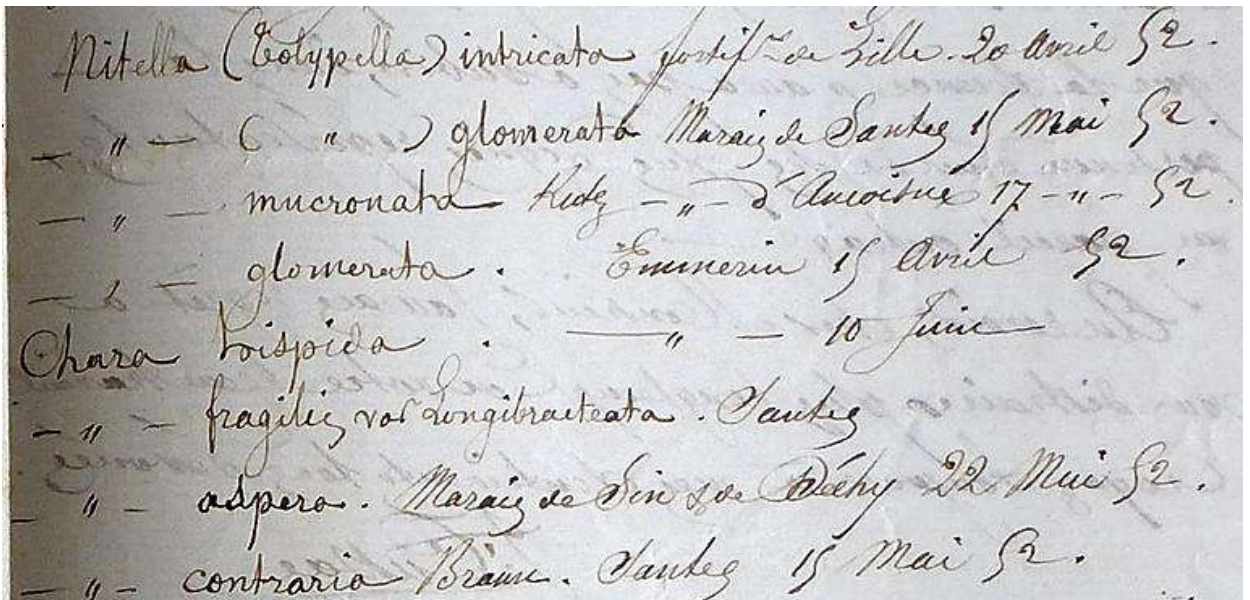 Nitella (Tolypella) intricata fortif.ns de Lille. 20 avril 52.
— " — ( " ) glomerata Marais de Santes 15 Mai 52.
— " — mucronata Kutz — " — d'Ancoisne 17 - " - 52.
— " — glomerata . Emmerin 15 Avril 52.
Chara hispida . — " — 10 Juin —
— " — fragilis var longibracteata . Santes
— " — aspera . Marais de Sin & de Déchy 22 Mai 52.
— " — contraria Braun . Santes 15 Mai 52.